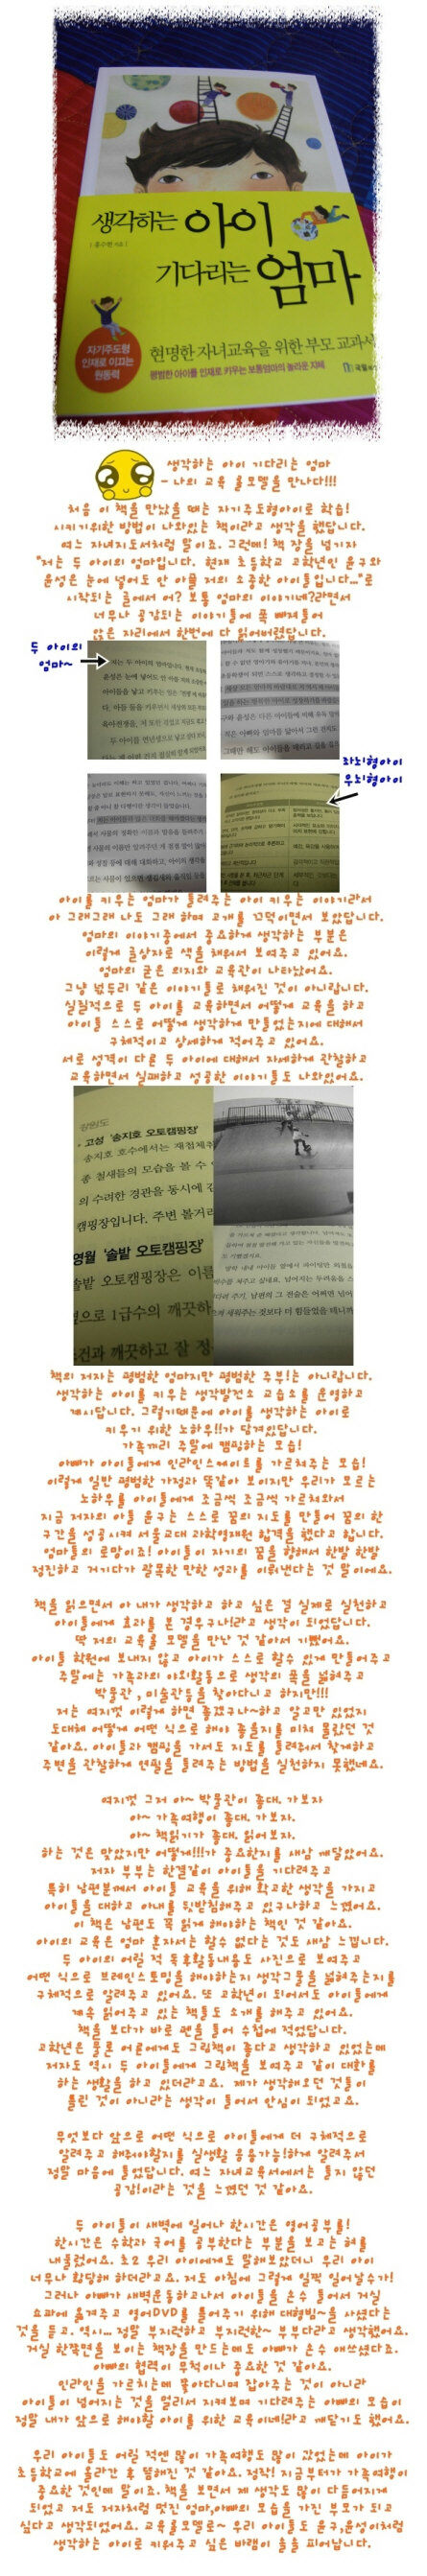 생각하는 아이
[ 홍수현 지음 ]
기다리는 엄마
자기주도형
인재로 이끄는
원동력
현명한 자녀교육을 위한 부모 교과서
평범한 아이를 인재로 키우는 보통엄마의 놀라운 지혜
국일
생각하는 아이 기다리는 엄마
- 나의 교육 롤모델을 만나다!!!
처음 이 책을 만났을 때는 자기주도형아이로 학습!
시키기위한 방법이 나와있는 책이라고 생각을 했답니다.
여느 자녀지도서처럼 말이죠. 그런데! 책 장을 넘기자
"저는 두 아이의 엄마입니다. 현재 초등학교 고학년인 윤구와
윤성은 눈에 넣어도 안 아플 저의 소중한 아이들입니다..."로
시작되는 글에서 어? 보통 엄마의 이야기네?라면서
너무나 공감되는 이야기들에 푹 빠져들어
앉은 자리에서 한번에 다 읽어버렸답니다.
두 아이의
엄마~
좌뇌형아이
우뇌형아이
아이를 키우는 엄마가 들려주는 아이 키우는 이야기라서
아 그래그래 나도 그래 하며 고개를 끄덕이면서 보았답니다.
엄마의 이야기중에서 중요하게 생각하는 부분은
이렇게 글상자로 색을 채워서 보여주고 있어요.
엄마의 굳은 의지와 교육관이 나타났어요.
그냥 넋두리 같은 이야기들로 채워진 것이 아니랍니다.
실질적으로 두 아이를 교육하면서 어떻게 교육을 하고
아이들 스스로 어떻게 생각하게 만들었는지에 대해서
구체적이고 상세하게 적어주고 있어요.
서로 성격이 다른 두 아이에 대해서 자세하게 관찰하고
교육하면서 실패하고 성공한 이야기들도 나와있어요.
강원도
고성 '송지호 오토캠핑장'
송지호 호수에서는 재첩채취
종 철새들의 모습을 볼 수
의 수려한 경관을 동시에
캠핑장입니다. 주변 볼거리
영월 '솔밭 오토캠핑장'
솔밭 오토캠핑장은 이름
으로 1급수의 깨끗하
건과 깨끗하고 잘 정
책의 저자는 평범한 엄마지만 평범한 주부!는 아니랍니다.
생각하는 아이를 키우는 생각발전소 교습소를 운영하고
계시답니다. 그렇기때문에 아이를 생각하는 아이로
키우기 위한 노하우!!가 담겨있답니다.
가족끼리 주말에 캠핑하는 모습!
아빠가 아이들에게 인라인스케이트를 가르쳐주는 모습!
이렇게 일반 평범한 가정과 똑같아 보이지만 우리가 모르는
노하우를 아이들에게 조금씩 조금씩 가르쳐와서
지금 저자의 아들 윤구는 스스로 꿈의 지도를 만들어 꿈의 한
구간을 성공시켜 서울교대 과학영재원 합격을 했다고 합니다.
엄마들의 로망이죠! 아이들이 자기의 꿈을 향해서 한발 한발
정진하고 거기다가 괄목한 만한 성과를 이뤄낸다는 것 말이에요.
책을 읽으면서 아 내가 생각하고 하고 싶은 걸 실제로 실천하고
아이들에게 효과를 본 경우구나!라고 생각이 되었답니다.
딱 저의 교육롤 모델을 만난 것 같아서 기뻤어요.
아이들 학원에 보내지 않고 아이가 스스로 할수 있게 만들어주고
주말에는 가족과의 야외활동으로 생각의 폭을 넓혀주고
박물관 , 미술관등을 찾아다니고 하지만!!!
저는 여지껏 이렇게 하면 좋겠구나~하고 알고만 있었지
도대체 어떻게 어떤 식으로 해야 좋을지를 미쳐 몰랐던 것
같아요. 아이들과 캠핑을 가서도 지도를 들려줘서 찾게하고
주변을 관찰하게 연필을 들려주는 방법을 실천하지 못했네요.
여지껏 그저 아~ 박물관이 좋대. 가보자
아~ 가족여행이 좋대. 가보자.
아~ 책읽기가 좋대. 읽어보자.
하는 것은 맞았지만 어떻게!!!가 중요한지를 새삼 깨달았어요.
저자 부부는 한결같이 아이들을 기다려주고
특히 남편분께서 아이들 교육을 위해 확고한 생각을 가지고
아이들을 대하고 아내를 뒷받침해주고 있구나하고 느꼈어요.
이 책은 남편도 꼭 읽게 해야하는 책인 것 같아요.
아이의 교육은 엄마 혼자서는 할수 없다는 것도 새삼 느낍니다.
두 아이의 어릴 적 독후활동내용도 사진으로 보여주고
어떤 식으로 브레인스토밍을 해야하는지 생각그물을 넓혀주는지를
구체적으로 알려주고 있어요. 또 고학년이 되어서도 아이들에게
계속 읽어주고 있는 책들도 소개를 해주고 있어요.
책을 보다가 바로 펜을 들어 수첩에 적었답니다.
고학년은 물론 어른에게도 그림책이 좋다고 생각하고 있었는데
저자도 역시 두 아이들에게 그림책을 보여주고 같이 대화를
하는 생활을 하고 있더라고요. 제가 생각해오던 것들이
틀린 것이 아니라는 생각이 들어서 안심이 되었고요.
무엇보다 앞으로 어떤 식으로 아이들에게 더 구체적으로
알려주고 해줘야할지를 실생활 응용가능!하게 알려주셔
정말 마음에 들었답니다. 여느 자녀교육서에서는 들지 않던
공감!이라는 것을 느꼈던 것 같아요.
두 아이들이 새벽에 일어나 한시간은 영어공부를!
한시간은 수학과 국어를 공부한다는 부분을 보고는 혀를
내둘렀어요. 초2 우리 아이에게도 말해보았더니 우리 아이
너무나 황당해 하더라고요. 저도 아침에 그렇게 일찍 일어날수가!
그러나 아빠가 새벽운동하고나서 아이들을 손수 들어서 거실
쇼파에 옮겨주고 영어DVD를 틀어주기 위해 대형빔~을 사셨다는
것을 듣고. 역시... 정말 부지런하고 부지런한~ 부부다라고 생각했어요.
거실 한쪽면을 보이는 책장을 만드는데도 아빠가 손수 애쓰셨다죠.
아빠의 협력이 무척이나 중요한 것 같아요.
인라인을 가르치는데 쫓아다니며 잡아주는 것이 아니라
아이들이 넘어지는 것을 멀리서 지켜보며 기다려주는 아빠의 모습이
정말 내가 앞으로 해야할 아이를 위한 교육이네!라고 깨닫기도 했어요.
우리 아이들도 어릴 적엔 많이 가족여행도 많이 갔었는데 아이가
초등학교에 올라간 후 뜸해진 것 같아요. 정작! 지금부터가 가족여행이
중요한 것인데 말이죠. 책을 보면서 제 생각도 많이 다듬어지게
되었고 저도 저자처럼 멋진 엄마,아빠의 모습을 가진 부모가 되고
싶다고 생각되었어요. 교육롤모델로~ 우리 아이들도 윤구,윤성이처럼
생각하는 아이로 키워주고 싶은 바램이 솔솔 피어납니다.